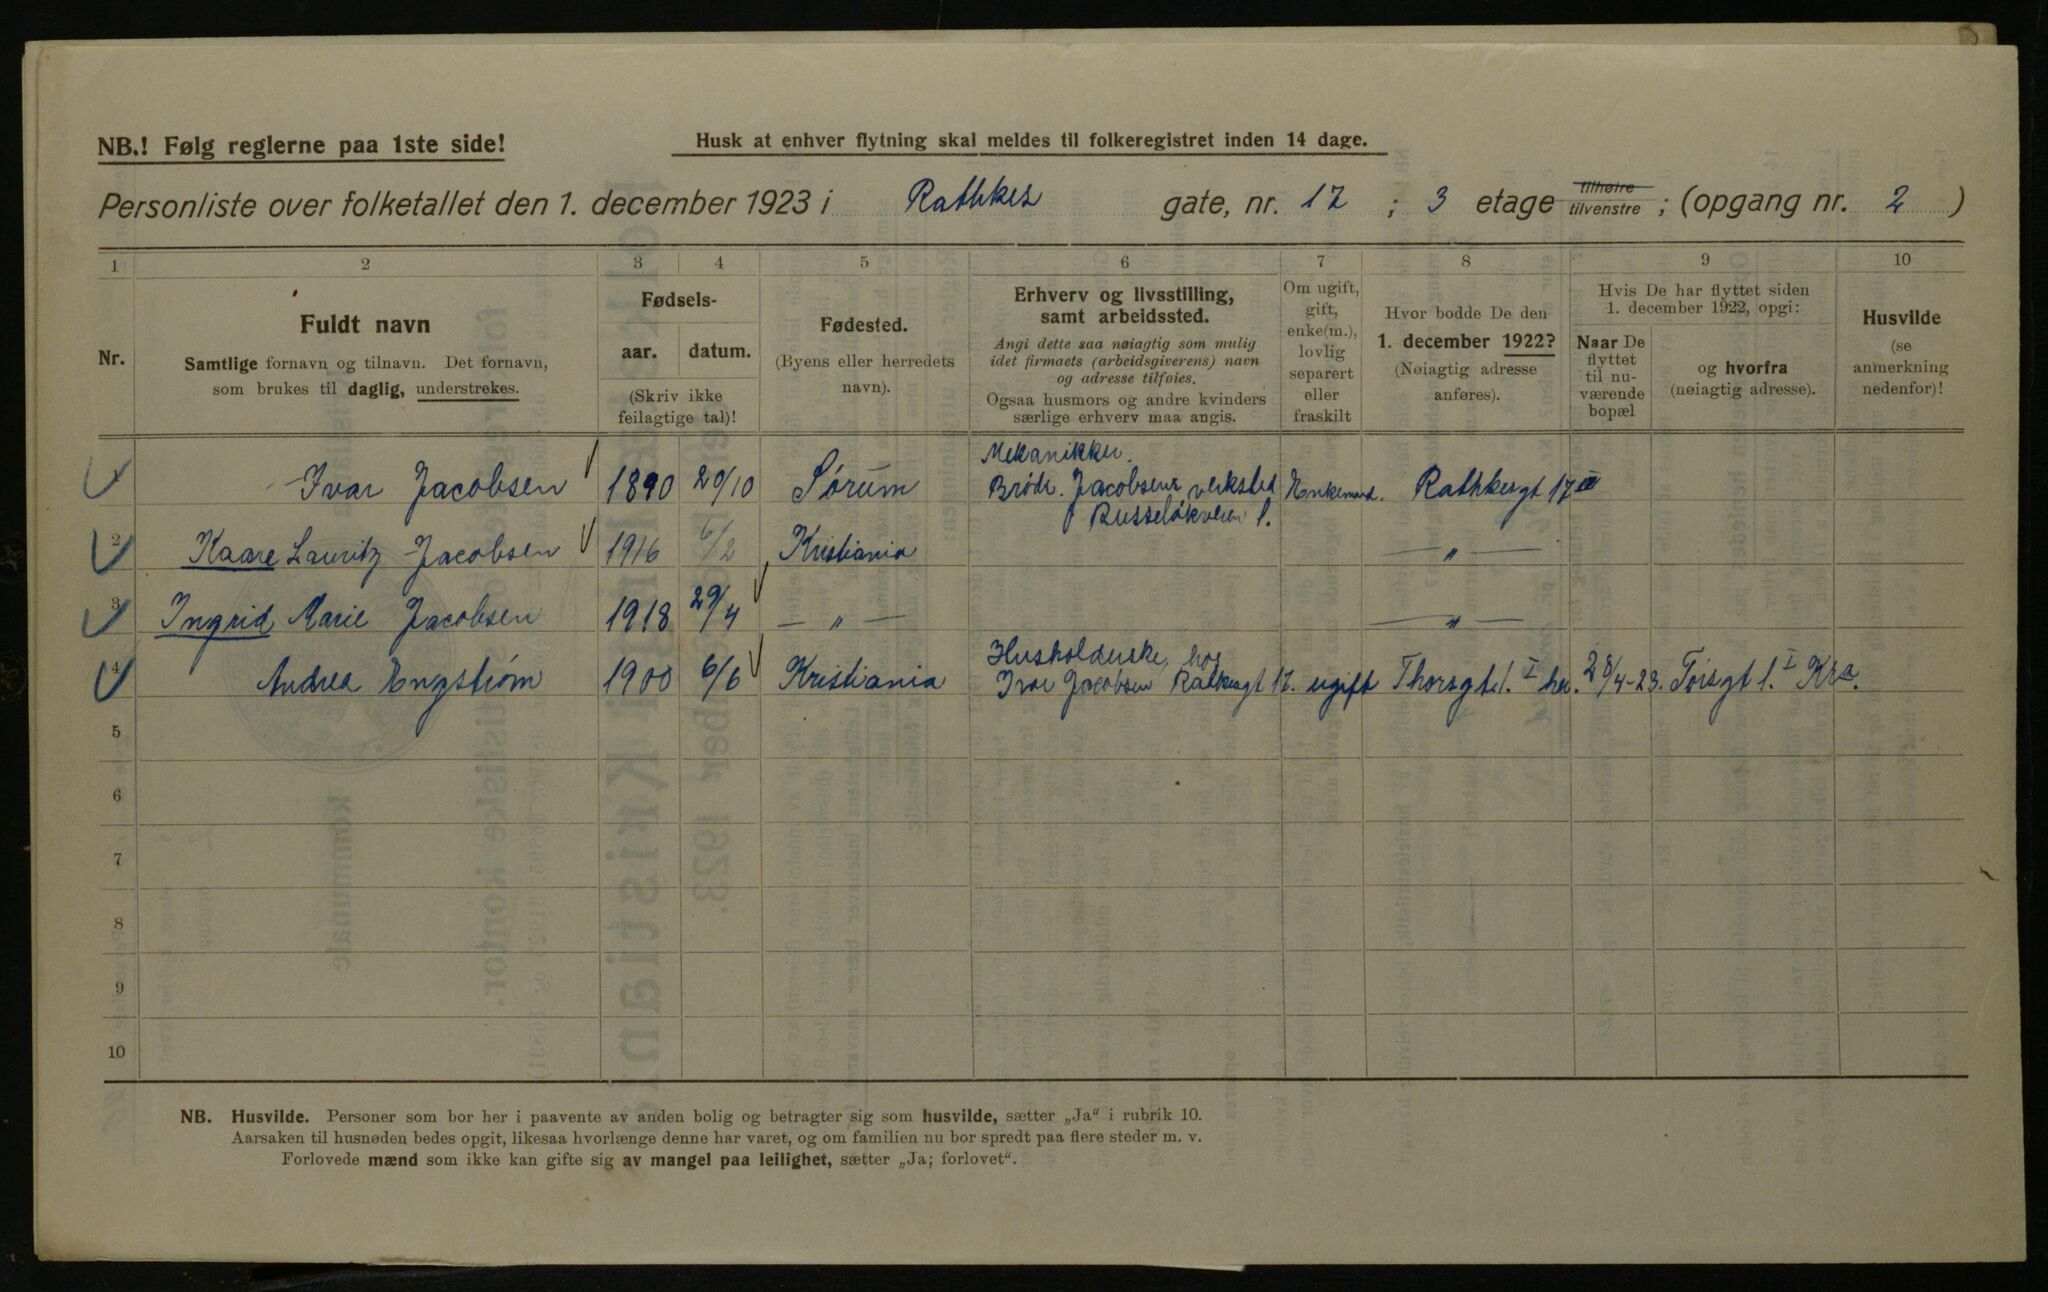 NB.! Følg reglerne paa 1ste side!
Husk at enhver flytning skal meldes til folkeregistret inden 14 dage.
Personliste over folketallet den 1. december 1923 i Rathkes gate, nr. 17 ; 3 etage tilhøire tilvenstre ; (opgang nr. 2 )
1 2 3 4 5 6 7 8 9 10
Nr.
Fuldt navn
Samtlige fornavn og tilnavn. Det fornavn,
som brukes til daglig, understrekes.
Fødsels-
aar. datum.
(Skriv ikke
feilagtige tal)!
Fødested.
(Byens eller herredets
navn).
Erhverv og livsstilling,
samt arbeidssted.
Angi dette saa nøiagtig som mulig
idet firmaets (arbeidsgiverens) navn
og adresse tilføies.
Ogsaa husmors og andre kvinders
særlige erhverv maa angis.
Om ugift,
gift,
enke(m.),
lovlig
separert
eller
fraskilt
Hvor bodde De den
1. december 1922?
(Nøiagtig adresse
anføres).
Hvis De har flyttet siden
1. december 1922, opgi:
Naar De
flyttet
til nu-
værende
bopæl
og hvorfra
(nøiagtig adresse).
Husvilde
(se
anmerkning
nedenfor)!
Mekanikker.
1 Ivar Jacobsen 1890 20/10 Sørum Brødr. Jacobsens verksted Enkemand. Rathkesgt 17 III
Russeløkveien 1.
2 Kaare Lauritz Jacobsen 1916 6/2 Kristiania — „ —
3 Ingrid Marie Jacobsen 1918 29/4 — „ — — „ —
Husholderske hos
4 Andrea Engstrøm 1900 6/6 Kristiania Ivar Jacobsen Rathkesgt 17. ugift Thorsgt 1. I her. 28/4-23. Torsgt 1. I Kra.
5
6
7
8
9
10
NB. Husvilde. Personer som bor her i paavente av anden bolig og betragter sig som husvilde, sætter „Ja“ i rubrik 10.
Aarsaken til husnøden bedes opgit, likesaa hvorlænge denne har varet, og om familien nu bor spredt paa flere steder m. v.
Forlovede mænd som ikke kan gifte sig av mangel paa leilighet, sætter „Ja; forlovet“.